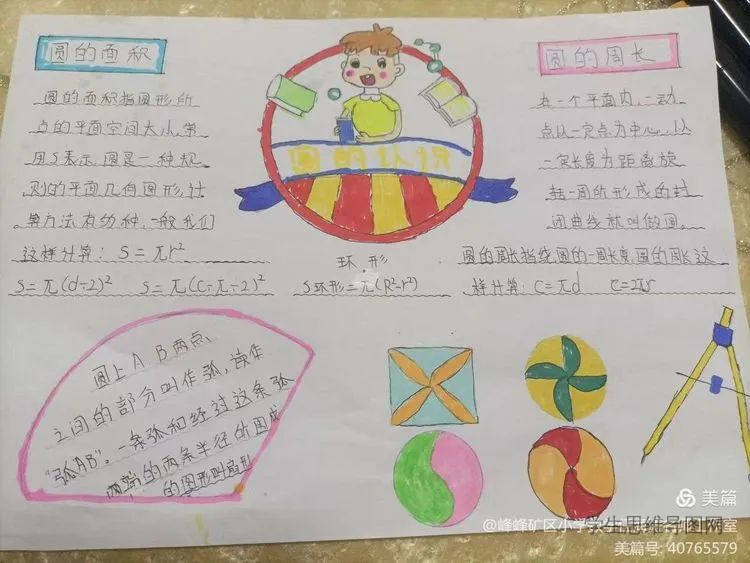 圆的面积
圆的面积指圆形所
占的平面空间大小,常
用S表示,圆是一种规
则的平面几何图形,计
算方法有幼种,一般我们
这样计算: S=πr²
S=π(d÷2)² S=π(c÷π÷2)²
圆的认识
环形
S环形=π(R²-r²)
圆的周长
在一个平面内,一动
点以一定点为中心,以
一定长度为距离旋
转一周所形成的封
闭曲线就叫做圆。
圆的周长指绕圆的一周长度,圆的周长这
样计算: C=πd C=2πr
圆上AB两点
之间的部分叫作弧,读作
“弧AB”。一条弧和经过这条弧
两端的两条半径所围成
的图形叫扇形
美篇
@峰峰矿区小学
学生思维导图网
室
美篇号: 40765579